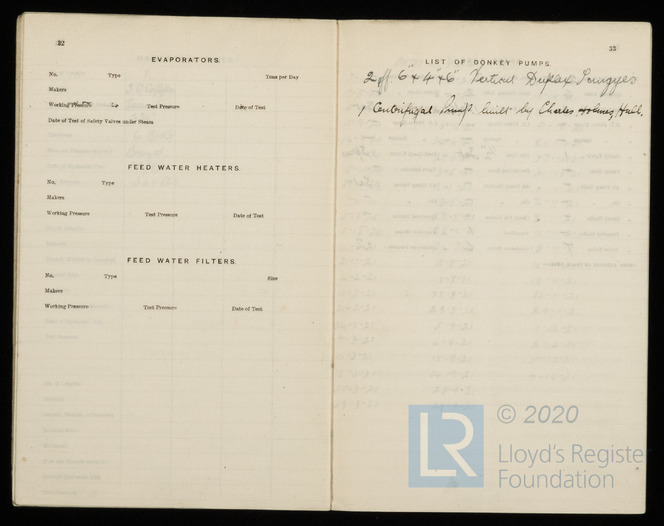 32
EVAPORATORS.
No. Type Tons per Day
Makers
Working Pressure Test Pressure Date of Test
Date of Test of Safety Valves under Steam
FEED WATER HEATERS.
No. Type
Makers
Working Pressure Test Pressure Date of Test
FEED WATER FILTERS.
No. Type Size
Makers
Working Pressure Test Pressure Date of Test
33
LIST OF DONKEY PUMPS.
2 off 6" x 4" x 6" Vertical Duplex
1 Centrifugal Pump built by Charles Holmes, Hull.
LR
© 2020
Lloyd's Register
Foundation